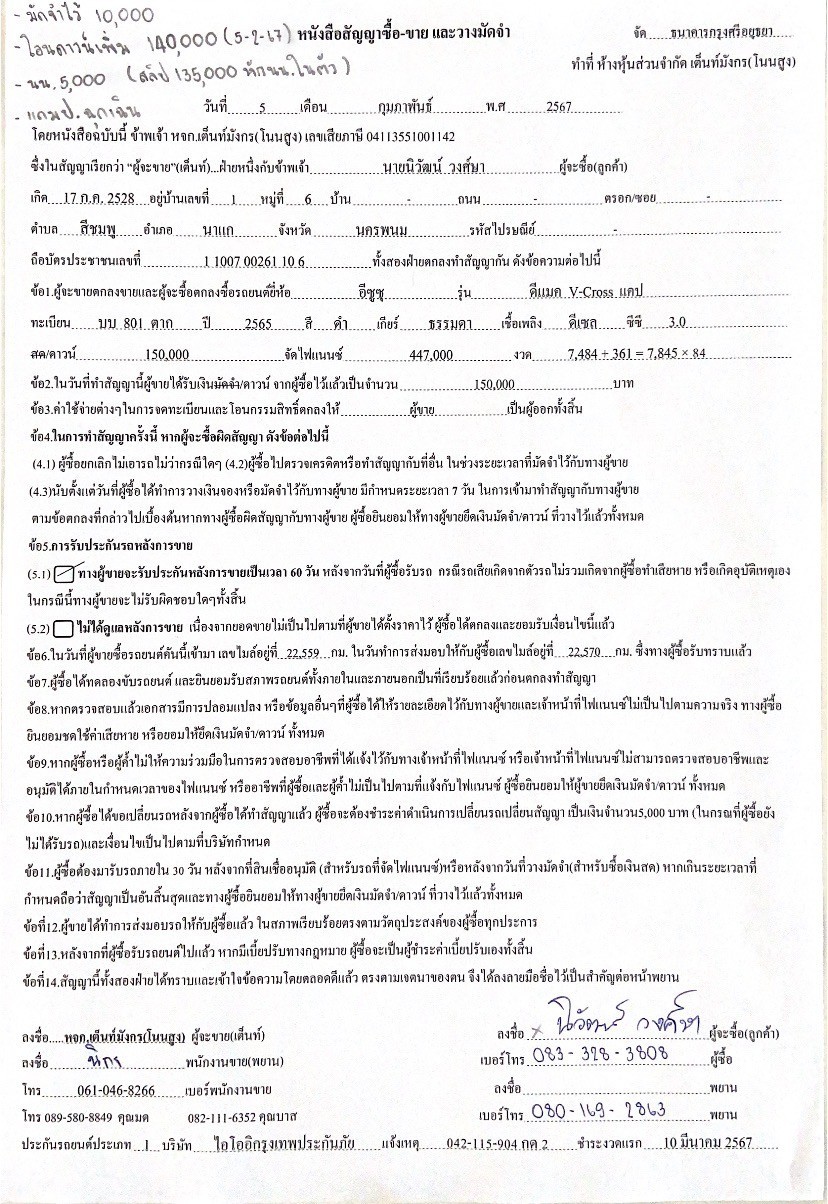 - มัดจำไว้ 10,000
- โอนดาวน์เพิ่ม 140,000 (5-2-67)
- นน. 5,000 (สลิป 135,000 หักนน.ในตัว)
- แถมป. ฉุกเฉิน
หนังสือสัญญาซื้อ-ขาย และวางมัดจำ
จัด ธนาคารกรุงศรีอยุธยา
ทำที่ ห้างหุ้นส่วนจำกัด เต็นท์มังกร(โนนสูง)
วันที่ 5 เดือน กุมภาพันธ์ พ.ศ 2567
โดยหนังสือฉบับนี้ ข้าพเจ้า หจก.เต็นท์มังกร(โนนสูง) เลขเสียภาษี 04113551001142
ซึ่งในสัญญาเรียกว่า "ผู้จะขาย"(เต็นท์)...ฝ่ายหนึ่งกับข้าพเจ้า นายนิวัฒน์ วงศ์ษา ผู้จะซื้อ(ลูกค้า)
เกิด 17 ก.ค. 2528 อยู่บ้านเลขที่ 1 หมู่ที่ 6 บ้าน - ถนน - ตรอก/ซอย -
ตำบล สีชมพู อำเภอ นาแก จังหวัด นครพนม รหัสไปรษณีย์ -
ถือบัตรประชาชนเลขที่ 1 1007 00261 10 6 ทั้งสองฝ่ายตกลงทำสัญญากัน ดังข้อความต่อไปนี้
ข้อ1.ผู้จะขายตกลงขายและผู้จะซื้อตกลงซื้อรถยนต์ยี่ห้อ อีซูซุ รุ่น ดีแมค V-Cross แคป
ทะเบียน บบ 801 ตาก ปี 2565 สี ดำ เกียร์ ธรรมดา เชื้อเพลิง ดีเซล ซีซี 3.0
สด/ดาวน์ 150,000 จัดไฟแนนซ์ 447,000 งวด 7,484 + 361 = 7,845 × 84
ข้อ2.ในวันที่ทำสัญญานี้ผู้ขายได้รับเงินมัดจำ/ดาวน์ จากผู้ซื้อไว้แล้วเป็นจำนวน 150,000 บาท
ข้อ3.ค่าใช้จ่ายต่างๆในการจดทะเบียนและโอนกรรมสิทธิ์ตกลงให้ ผู้ขาย เป็นผู้ออกทั้งสิ้น
ข้อ4.ในการทำสัญญาครั้งนี้ หากผู้จะซื้อผิดสัญญา ดังข้อต่อไปนี้
(4.1) ผู้ซื้อยกเลิกไม่เอารถไม่ว่ากรณีใดๆ (4.2)ผู้ซื้อไปตรวจเครดิตหรือทำสัญญากับที่อื่น ในช่วงระยะเวลาที่มัดจำไว้กับทางผู้ขาย
(4.3)นับตั้งแต่วันที่ผู้ซื้อได้ทำการวางเงินจองหรือมัดจำไว้กับทางผู้ขาย มีกำหนดระยะเวลา 7 วัน ในการเข้ามาทำสัญญากับทางผู้ขาย
ตามข้อตกลงที่กล่าวไปเบื้องต้นหากทางผู้ซื้อผิดสัญญากับทางผู้ขาย ผู้ซื้อยินยอมให้ทางผู้ขายยึดเงินมัดจำ/ดาวน์ ที่วางไว้แล้วทั้งหมด
ข้อ5.การรับประกันรถหลังการขาย
(5.1) ทางผู้ขายจะรับประกันหลังการขายเป็นเวลา 60 วัน หลังจากวันที่ผู้ซื้อรับรถ กรณีรถเสียเกิดจากตัวรถไม่รวมเกิดจากผู้ซื้อทำเสียหาย หรือเกิดอุบัติเหตุเอง
ในกรณีนี้ทางผู้ขายจะไม่รับผิดชอบใดๆทั้งสิ้น
(5.2) ไม่ได้ดูแลหลังการขาย เนื่องจากยอดขายไม่เป็นไปตามที่ผู้ขายได้ตั้งราคาไว้ ผู้ซื้อได้ตกลงและยอมรับเงื่อนไขนี้แล้ว
ข้อ6.ในวันที่ผู้ขายซื้อรถยนต์คันนี้เข้ามา เลขไมล์อยู่ที่ 22,559 กม. ในวันทำการส่งมอบให้กับผู้ซื้อเลขไมล์อยู่ที่ 22,570 กม. ซึ่งทางผู้ซื้อรับทราบแล้ว
ข้อ7.ผู้ซื้อได้ทดลองขับรถยนต์ และยินยอมรับสภาพรถยนต์ทั้งภายในและภายนอกเป็นที่เรียบร้อยแล้วก่อนตกลงทำสัญญา
ข้อ8.หากตรวจสอบแล้วเอกสารมีการปลอมแปลง หรือข้อมูลอื่นๆที่ผู้ซื้อได้ให้รายละเอียดไว้กับทางผู้ขายและเจ้าหน้าที่ไฟแนนซ์ไม่เป็นไปตามความจริง ทางผู้ซื้อ
ยินยอมชดใช้ค่าเสียหาย หรือยอมให้ยึดเงินมัดจำ/ดาวน์ ทั้งหมด
ข้อ9.หากผู้ซื้อหรือผู้ค้ำไม่ให้ความร่วมมือในการตรวจสอบอาชีพที่ได้แจ้งไว้กับทางเจ้าหน้าที่ไฟแนนซ์ หรือเจ้าหน้าที่ไฟแนนซ์ไม่สามารถตรวจสอบอาชีพและ
อนุมัติได้ภายในกำหนดเวลาของไฟแนนซ์ หรืออาชีพที่ผู้ซื้อและผู้ค้ำไม่เป็นไปตามที่แจ้งกับไฟแนนซ์ ผู้ซื้อยินยอมให้ผู้ขายยึดเงินมัดจำ/ดาวน์ ทั้งหมด
ข้อ10.หากผู้ซื้อได้ขอเปลี่ยนรถหลังจากผู้ซื้อได้ทำสัญญาแล้ว ผู้ซื้อจะต้องชำระค่าดำเนินการเปลี่ยนรถเปลี่ยนสัญญา เป็นเงินจำนวน5,000 บาท (ในกรณที่ผู้ซื้อยัง
ไม่ได้รับรถ)และเงื่อนไขเป็นไปตามที่บริษัทกำหนด
ข้อ11.ผู้ซื้อต้องมารับรถภายใน 30 วัน หลังจากที่สินเชื่ออนุมัติ (สำหรับรถที่จัดไฟแนนซ์)หรือหลังจากวันที่วางมัดจำ(สำหรับซื้อเงินสด) หากเกินระยะเวลาที่
กำหนดถือว่าสัญญาเป็นอันสิ้นสุดและทางผู้ซื้อยินยอมให้ทางผู้ขายยึดเงินมัดจำ/ดาวน์ ที่วางไว้แล้วทั้งหมด
ข้อที่12.ผู้ขายได้ทำการส่งมอบรถให้กับผู้ซื้อแล้ว ในสภาพเรียบร้อยตรงตามวัตถุประสงค์ของผู้ซื้อทุกประการ
ข้อที่13.หลังจากที่ผู้ซื้อรับรถยนต์ไปแล้ว หากมีเบี้ยปรับทางกฎหมาย ผู้ซื้อจะเป็นผู้ชำระค่าเบี้ยปรับเองทั้งสิ้น
ข้อที่14.สัญญานี้ทั้งสองฝ่ายได้ทราบและเข้าใจข้อความโดยตลอดดีแล้ว ตรงตามเจตนาของตน จึงได้ลงลายมือชื่อไว้เป็นสำคัญต่อหน้าพยาน
ลงชื่อ.....หจก.เต็นท์มังกร(โนนสูง) ผู้จะขาย(เต็นท์) ลงชื่อ × นิวัฒน์ วงศ์ษา ผู้จะซื้อ(ลูกค้า)
ลงชื่อ พนักงานขาย(พยาน) เบอร์โทร 083-328-3808 ผู้ซื้อ
โทร 061-046-8266 เบอร์พนักงานขาย ลงชื่อ พยาน
โทร 089-580-8849 คุณมด 082-111-6352 คุณบาส เบอร์โทร 080-169-2863 พยาน
ประกันรถยนต์ประเภท 1 บริษัท ไอโออิกรุงเทพประกันภัย แจ้งเหตุ 042-115-904 กด 2 ชำระงวดแรก 10 มีนาคม 2567